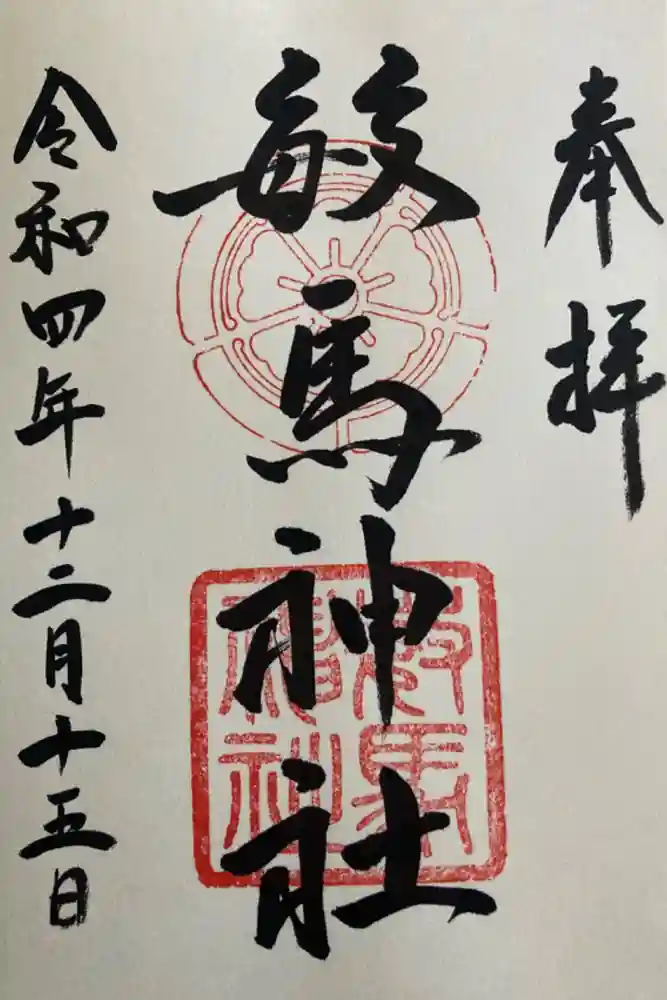 奉拝
敏馬神社
令和四年十二月十五日
敏馬
神社